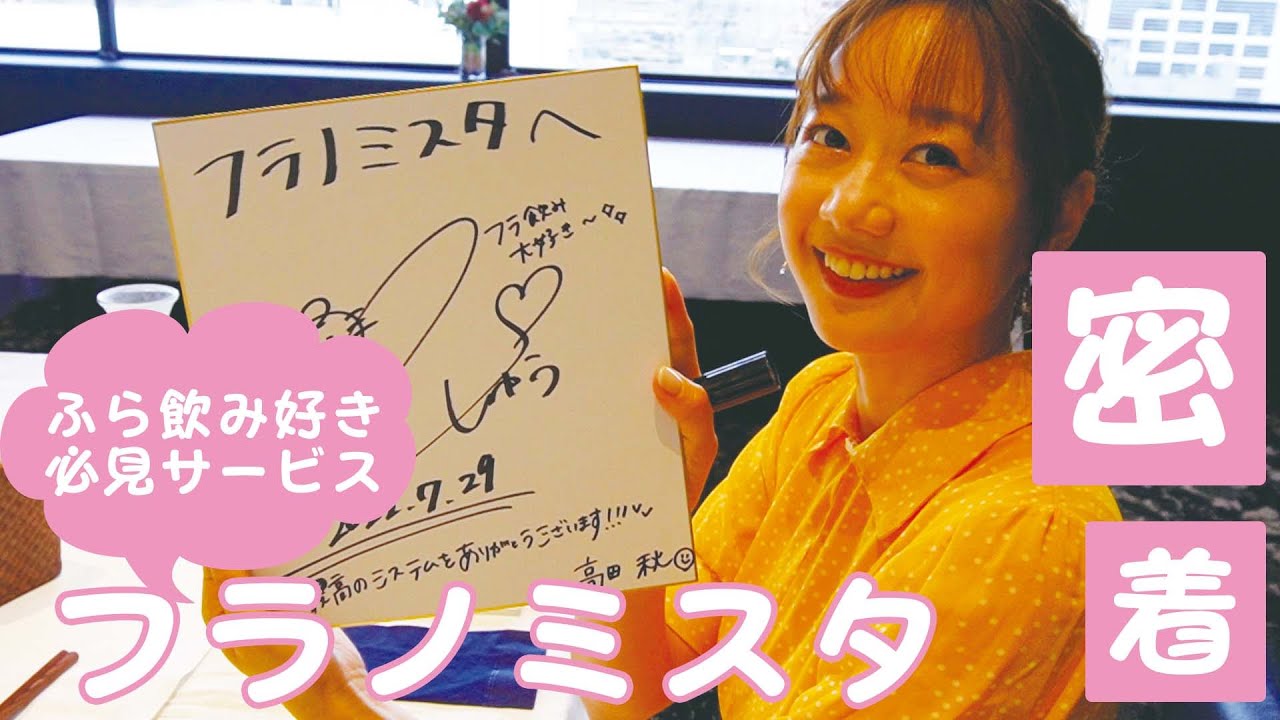 フラノミスタへ
フラ飲み
大好き〜
しゅう
7.29
最高のシステムをありがとうございます!!!
高田 秋
ふら飲み好き
必見サービス
フラノミスタ
密
着